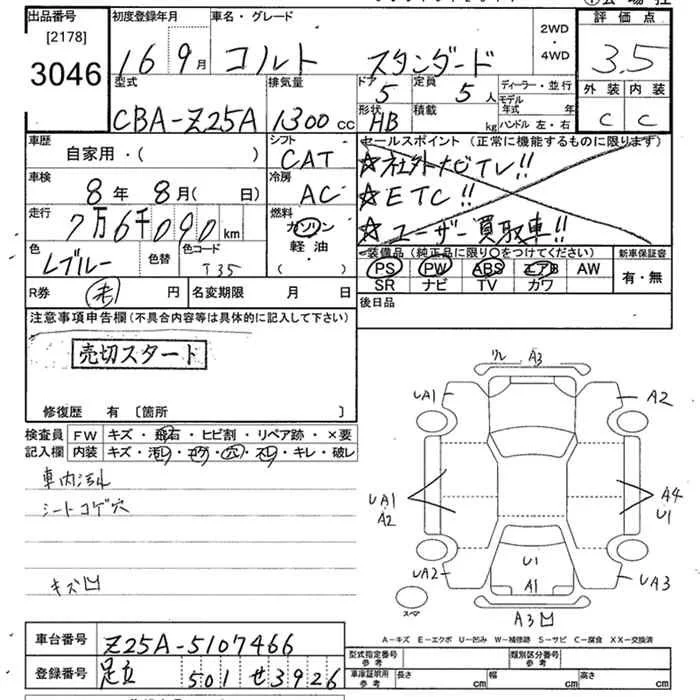 出品番号 初度登録年月 車名・グレード 2WD・4WD 評価点
[2178]
3046 16 9月 コルト スタンダード 3.5
型式 排気量 ドア 5 定員 5人 ディーラー・並行 外装 内装
CBA-Z25A 1300cc 形状 HB 積載 kg モデル年式 年 ハンドル 左・右 C C
車歴 自家用・( ) シフト CAT セールスポイント (正常に機能するものに限ります)
☆社外ナビTV!!
車検 8年 8月( 日) 冷房 AC ☆ETC!!
走行 7万6千090km 燃料 ガソリン 軽油・( ) ☆ユーザー買取車!!
色 Lブルー 色替 色コード T35 装備品(純正品に限り○をつけてください) 新車保証書
PS PW ABS エアB AW 有・無
SR ナビ TV カワ
R券 未 円 名変期限 月 日 後日品
注意事項申告欄(不具合内容等は具体的に記入して下さい)
売切スタート
修復歴 有 〔箇所 〕
検査員 FW キズ・飛石・ヒビ割・リペア跡・×要
記入欄 内装 キズ・汚レ・コゲ・穴・スレ・キレ・破レ
車内汚れ
シートコゲ穴
キズ凹
リレ A3
UA1 A2
UA1 A2 A4 U1
U1
UA2 A1 UA3
スペア
A3凹
A-キズ E-エクボ U-凹み W-補修跡 S-サビ C-腐食 XX-交換済
車台番号 Z25A-5107466 型式指定番号 参考 類別区分番号 参考
登録番号 足立 501 せ3926 車庫証明用 参考 長さ cm 幅 cm 高さ cm